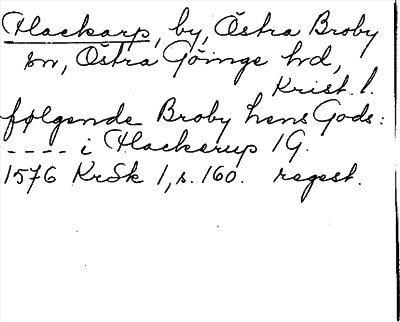 Flackarp, by, Östra Broby
sn, Östra Göinge hd,
Krist. l.
følgende Broby lens Gods:
---- i Flackerup 1 G.
1576 KrSk 1, s. 160. regest.